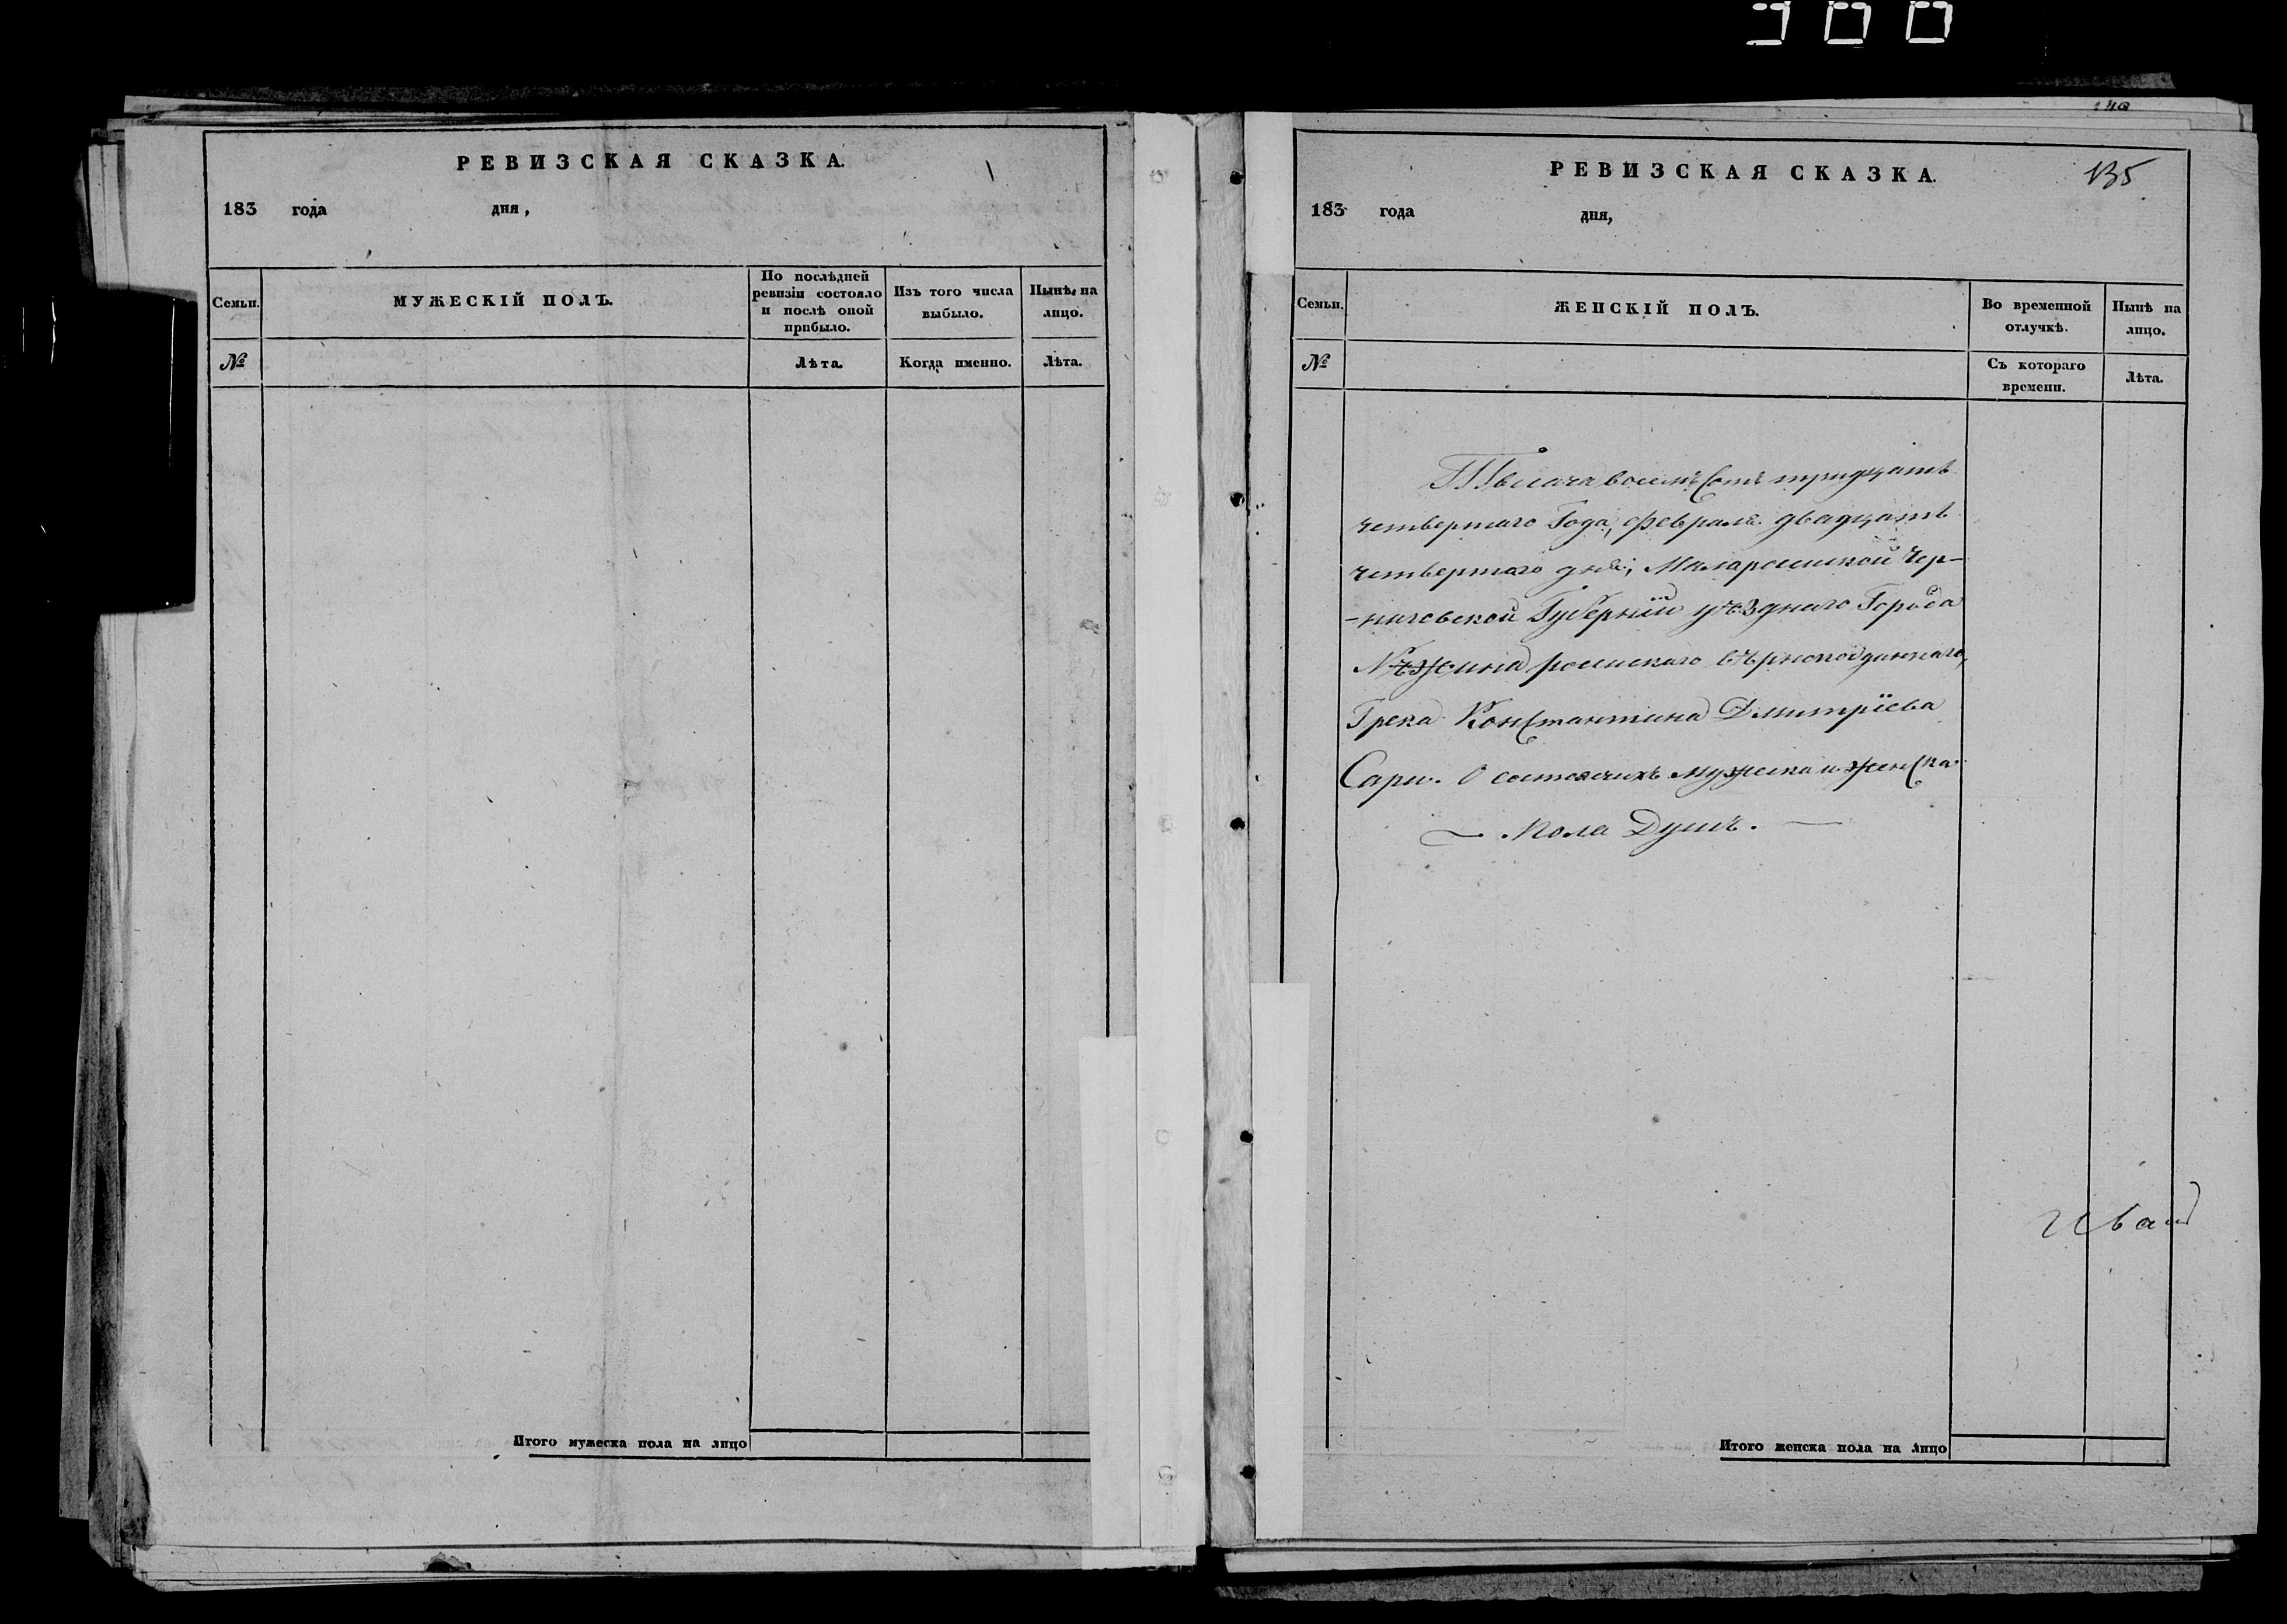 РЕВИЗСКАЯ СКАЗКА.
183 года дня,
Семьи. МУЖЕСКІЙ ПОЛЪ. По послѣдней ревизіи состояло и послѣ оной прибыло. Изъ того числа выбыло. Нынѣ на лицо.
№ Лѣта. Когда именно. Лѣта.
Итого мужеска пола на лицо
РЕВИЗСКАЯ СКАЗКА.
135
183 года дня,
Семьи. ЖЕНСКІЙ ПОЛЪ. Во временной отлучкѣ. Нынѣ на лицо.
№ Съ котораго времени. Лѣта.
Тысяча восемъ сотъ тридцать
четвертаго Года, февраля двадцать
четвертаго дня; Малоросійской Чер-
-ниговской Губерніи уѣзднаго Города
Нѣжина россійскаго вѣрноподданнаго,
Грека Константина Дмитріева
Сари. О состоячихъ мужеска и женска
— пола Душъ. —
Итого женска пола на лицо